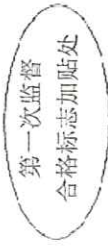 第一次监督
合格标志加贴处